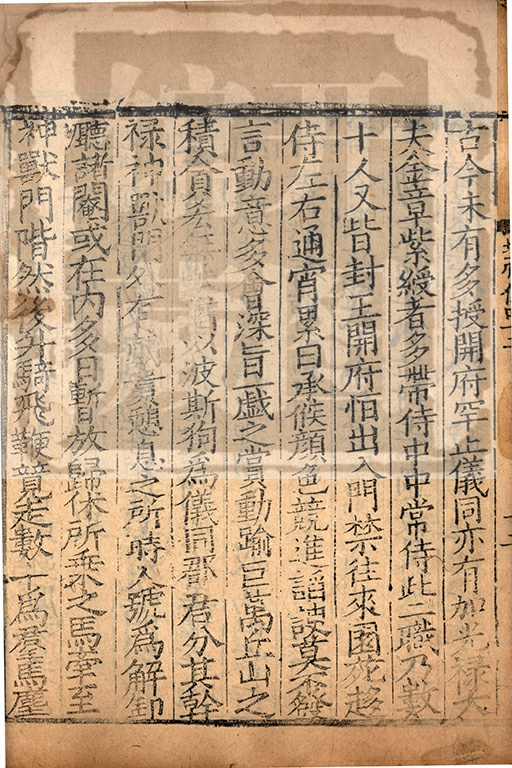 古今未有多授開府罕止儀同亦有加光祿大
夫金章紫綬者多帶侍中中常侍此二職乃數
十人又皆封王開府恒出入門禁往來園苑趨
侍左右通宵累日承候顏色競進諂諛莫不發
言動意多會深旨一戲之賞動踰巨萬丘山之
積貪吝無猒猶以波斯狗為儀同郡君分其幹
祿神獸門外有朝貴憩息之所時人號為解卸
廳諸閹或在内多日暫放歸休所乘之馬牽至
神獸門階然後升騎飛鞭競走數十為羣馬塵